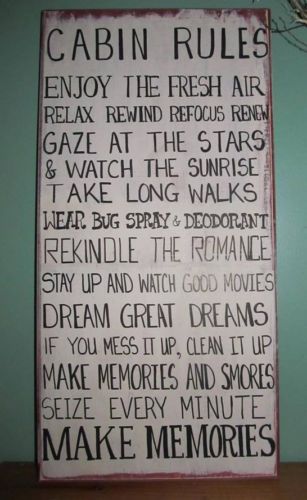 CABIN RULES
ENJOY THE FRESH AIR
RELAX REWIND REFOCUS RENEW
GAZE AT THE STARS
& WATCH THE SUNRISE
TAKE LONG WALKS
WEAR BUG SPRAY & DEODORANT
REKINDLE THE ROMANCE
STAY UP AND WATCH GOOD MOVIES
DREAM GREAT DREAMS
IF YOU MESS IT UP, CLEAN IT UP
MAKE MEMORIES AND SMORES
SEIZE EVERY MINUTE
MAKE MEMORIES